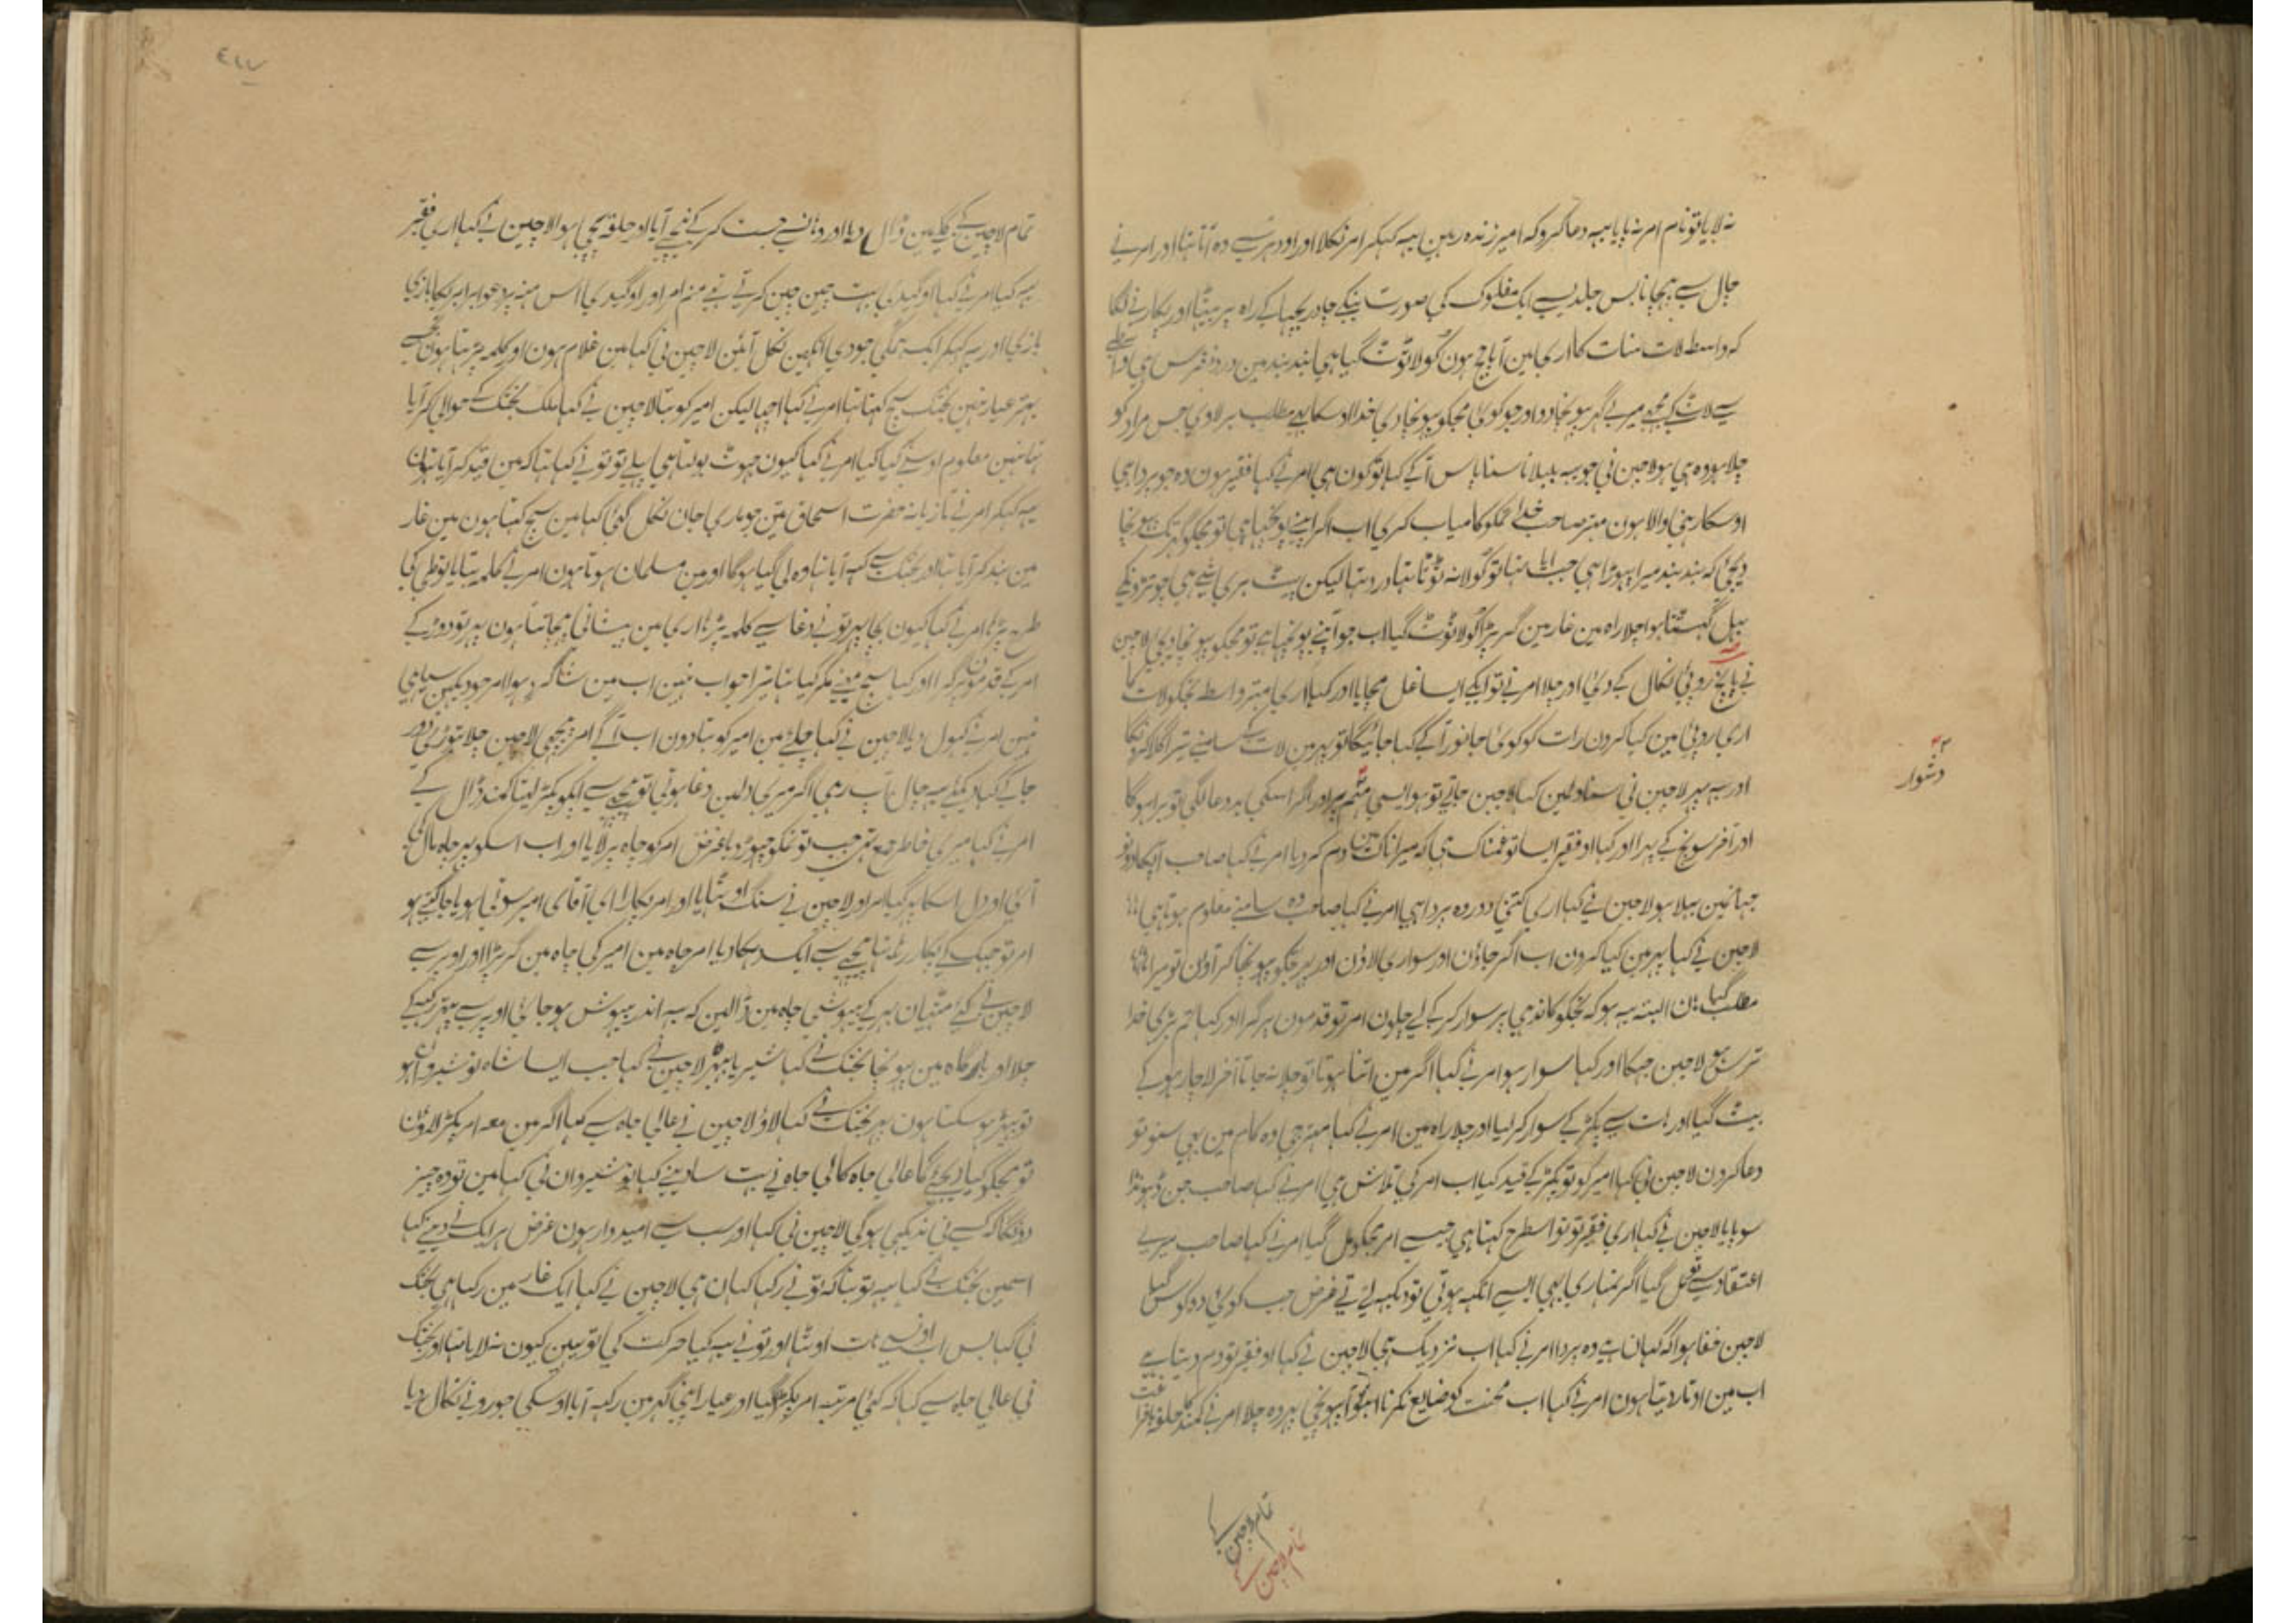 نہ لایا تو نام امر نہ پایا یہہ دعا کرو کہ امیر زندہ رہین یہہ کہکر امر نکلا اور اودہر سے وہ آتا تہا اور امر نے
چال سے پہچانا بس جلدیسے ایک مفلوک کی صورت بنکے چادر بچہا کے راہ پر بیٹہا اور پکارنے لگا
کہ واسطہ لات منات کا اری مین آپاہج ہون کولا ٹوٹ گیا ہی بند بند مین درد
سے لات کے مجہے میرے گہر پہونچا دو اور جو کوئی مجکو پہونچا دی خدا اوسکا مطلب بر لاوی جس مراد کو
چلا ہو وہ ہی ہو لاجین نی جو یہہ بلبلانا سنا پاس آکے کہا تو کون ہی امر نے کہا فقیر ہون وہ جو پروا ہی
اوسکا رہنی والا ہون مہتر صاحب خدا تمکو کامیاب کری اب اگر اپنے پوچہا ہی تو مجکو گہر تک پہونچا
دیجئی کہ بند بند میرا پہوڑا ہی جب آیا تہا تو کولا نہ ٹوٹا تہا درد تہا لیکن
بیل گہستا ہوا چلا راہ مین غار مین گر پڑا کولا ٹوٹ گیا اب جو آپنے پوچہا ہے تو مجکو پہونچا دیجی لاجین
نے پانچ روپئی نکال کے دئی اور چلا امر نے تو ایکے ایسا غل مچایا اور کہا اری مہتر واسطہ تجکو لات کا
اری روپئی مین کیا کرون رات کو کوئی جانور آکے کہا جائیگا تو پہر مین لات کے سامنے تیرا گلا کرونگا
اور یہہ پہر لاجین نی سنا دلمین کہا لاجین جاتے تو ہو ایسی مہم پر اور اگر اسکی بد دعا لگی تو برا ہوگا
اور آخر سوچ کے پہرا اور کہا او فقیر ایسا تو غمناک ہی کہ میرا ناک مین دم کر دیا امر نے کہا صاحب آپکا دونو
جہانمین بہلا ہو لاجین نے کہا اری کتنی دور وہ پروا ہی امر نے کہا صاحب وہ سامنے معلوم ہوتا ہی
لاجین نے کہا پہر مین کیا کرون اب اگر جاؤن اور سواری لاؤن اور پہر تجکو پہونچا کر آؤن تو میرا
مطلب گیا ہان البتہ یہہ ہو کہ تجکو کاندہی پر سوار کر کے لے چلون امر تو قدمون پر گرا اور کہا تم بڑی خدا
ترس ہو لاجین جہکا اور کہا سوار ہو امر نے کہا اگر مین اتنا ہوتا تو چلا نہ جاتا آخر لاچار ہو کے
بیٹ گیا اور ہات سے پکڑ کے سوار کر لیا اور چلا راہ مین امر نے کہا مہتر جی وہ کام مین بہی سنو تو
دعا کرون لاجین نی کہا امیر کو تو پکڑ کے قید کیا اب امر کی تلاش ہی امر نے کہا صاحب جن ڈہونڈا
سو پایا لاجین نے کہا اری فقیر تو تو اسطرح کہتا ہی جیسے امر مجکو مل گیا امر نے کہا صاحب میرے
اعتقاد سے تو مل گیا اگر تمہاری بہی ایسے انکہہ ہوتی تو دیکہہ لیتے غرض جب کوئی دو کوس گیا
لاجین خفا ہوا کہ کہان ہے وہ پروا امر نے کہا اب نزدیک ہی لاجین نے کہا او فقیر تو دم دیتا ہے
اب مین اوتار دیتا ہون امر نے کہا اب محنت کو ضایع نکرنا اب تو آ پہونچی پہر وہ چلا امر نے کمند کا حلقہ
دشوار
تمام لاجین کے
تمام لاجین کے
تمام لاجین کے گلے مین ڈال دیا اور وہانسے جست کر کے نیچے آیا اور حلقہ پہچی ہوا لاجین نے کہا اری فقیر
یہہ کیا امر نے کہا او گیدی بہت چین چین کرتے تہے منم امر اور او گیدی اس منہ پر دعوا برابر
بازی اور یہہ کہکر ایک تنگی جو دی آنکہین نکل آئین لاجین نی کہا مین غلام ہون اور کلمہ پڑہتا ہون
بہتر عیار نہین بختک سچ کہتا تہا امر نے کہا اچہا لیکن امیر کو بتا لاجین نے کہا ملک بختک کے حوالی کر آیا
تہا نہین معلوم اوسنے کیا کیا امر نے کہا کیون جہوٹ بولتا ہی پہلے تو تو نے کہا تہا کہ مین قید کر آیا ہون
یہہ کہکر امر نے تازیانہ حضرت اسحاق تین جو ماری جان نکل گئی کہا مین سچ کہتا ہون مین غار
مین بند کر آیا تہا اور بختک سے کہہ آیا تہا وہ لی گیا ہوگا اور مین مسلمان ہوتا ہون امر نے کلمہ بتایا طوطی کی
طرح پڑہا امر نے کہا کیون بی پیر تو نے دغا سے کلمہ پڑہا اری مین پیشانی پہچانتا ہون پہر تو دوڑ کے
امر کے قدمون پر گرا اور کہا سچ ہے مینے مکر کیا تہا تیرا جواب نہین اب مین شاگرد ہوا امر جو دیکہین سیاہی
نہین امر نے کہول دیا لاجین نے کہا چلئے مین امیر کو بتا دون اب آگے امر پیچہی لاجین چلا تہوڑی دور
جا کے کہا دیکہئے یہہ چال آپ رہی اگر میری دلمین دغا ہوتی تو پیچہے سے آپکو پکڑ لیتا کمند ڈال کے
امر نے کہا میری خاطر جمع تہی جب تو تمکو چہوڑ دیا غرض امر کو چاہ پر لایا اور اب اسکو پہر چاہ مال کی
آئی اور دل اسکا پہر گیا امر اور لاجین نے سنگ اوٹہایا اور امر پکارا ای آقای امیر سوتی ہو یا جاگتے ہو
امر تو جہک کے پکار رہا تہا پیچہے سے ایک دہکا دیا امر چاہ مین امیر کی چاہ مین گر پڑا اور اوپر سے
لاجین نے کئی مٹہیان بہر کے بیہوشی چاہ مین ڈالین کہ یہہ اندر بیہوش ہو جائی اوپر سے پتہر رکہکے
چلا اور بارگاہ مین پہونچا بختک نے کہا شیر یا بہیڑ لاجین نے کہا جب ایسا شاہ نوشیروان ہو
تو بہیڑ ہو سکتا ہون پہر بختک نے کہا لاؤ لاجین نے عالی جاہ سے کہا اگر مین معہ امر پکڑ لاؤن
تو مجکو کیا دیجئے گا عالی جاہ کالی جاہ نے بہت سا دینے کہا نوشیروان نی کہا مین تو وہ چیز
دونگا کہ کسے نی ندیکہی ہوگی لاجین نی کہا اور سب سے امیدوار ہون غرض ہر ایک نے دینے کہا
اسمین بختک نے کہا یہہ تو بتا کہ تو نے رکہا کہان ہی لاجین نے کہا ایک غار مین رکہا ہی بختک
نی کہا بس اب اونسے ہات اوٹہا اور تو نے یہہ کیا حرکت کی تو یہین کیون نہ لایا تہا اور بختک
نی عالی جاہ سے کہا کہ کئی مرتبہ امر پکڑا گیا اور عیار اپنی گہر مین رکہہ آیا اوسکی جورو نے نکال دیا